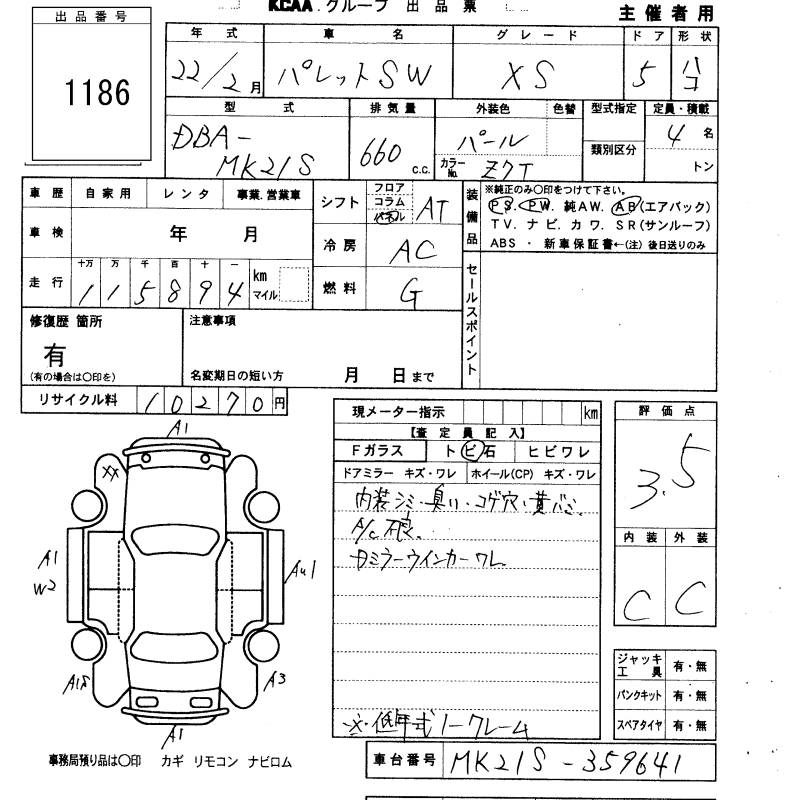 KCAA.グループ 出品票
主催者用
出品番号
1186
年式 車名 グレード ドア 形状
22/2月 パレットSW XS 5 ハコ
型式 排気量 外装色 色替 型式指定 定員・積載
DBA-
MK21S 660 c.c. パール 4名
カラーNo. Z7T 類別区分 トン
車歴 自家用 レンタ 事業.営業車
車検 年 月
走行 十万 万 千 百 十 一
115894 km
マイル
シフト フロア コラム AT
冷房 AC
燃料 G
装備品
※純正のみ〇印をつけて下さい。
PS. PW. 純AW. AB(エアバック)
TV. ナビ. カワ. SR(サンルーフ)
ABS ・ 新車保証書←(注) 後日送りのみ
セールスポイント
修復歴 箇所
有
(有の場合は〇印を)
注意事項
名変期日の短い方 月 日まで
リサイクル料 10270円
現メーター指示 km
【査定員記入】
Fガラス トビ石 ヒビワレ
ドアミラー キズ・ワレ ホイール(CP) キズ・ワレ
内装シミ・臭い・コゲ穴・黄バミ
A/C不良.
ドミラーウインカーワレ
※低年式ノークレーム
評価点
3.5
内装 外装
C C
ジャッキ
工具 有・無
パンクキット 有・無
スペアタイヤ 有・無
A1
XX
A1
W2
AU1
A3
A1
事務局預り品は〇印 カギ リモコン ナビロム
車台番号 MK21S-359641